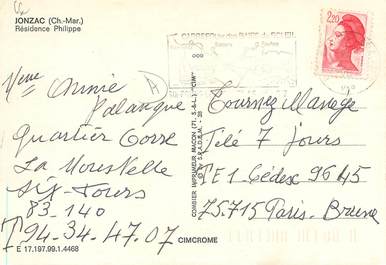 JONZAC (Ch.-Mar.)
Résidence Philippe
CARREFOUR des PAYS du SOLEIL
2,20
Mme Annie
Palanque
Quartier Gorre
La Moustelle
Six-Fours
83-140
T 94-34-47-07
E 17.197.99.1.4468
CIMCROME
COMBIER IMPRIMEUR MACON (71. S.-&-L.) "CIM"
Tournez Manège
Télé 7 Jours
TE1 Cédex 9645
75.715 Paris-Brune